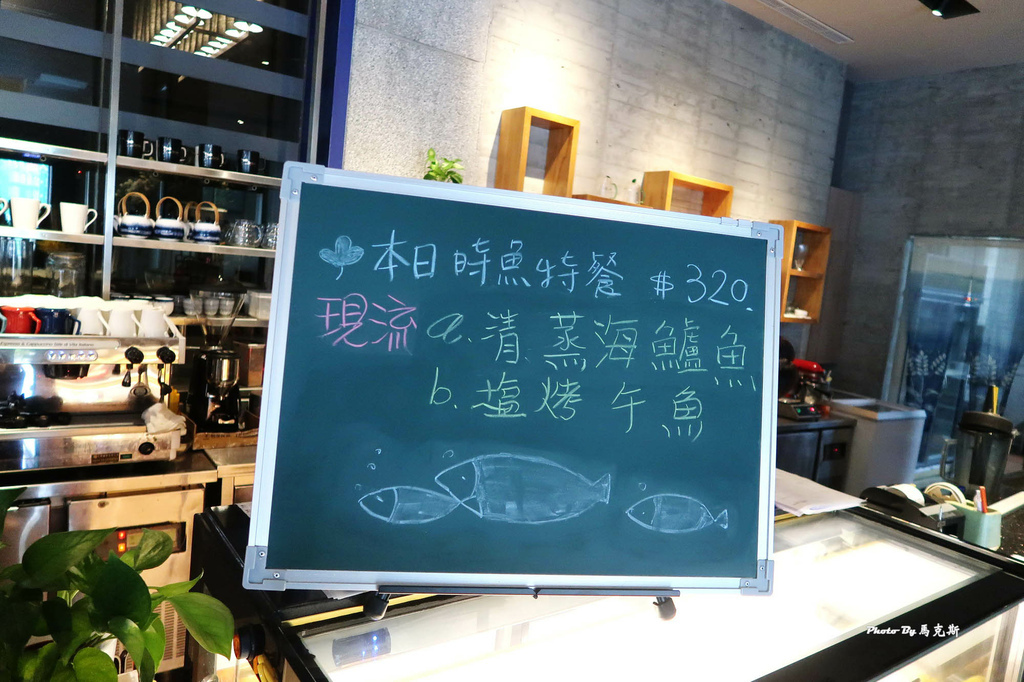 本日時魚特餐 $320.
現流 a. 清蒸海鱸魚
b. 塩烤午魚
Photo By 馬克斯